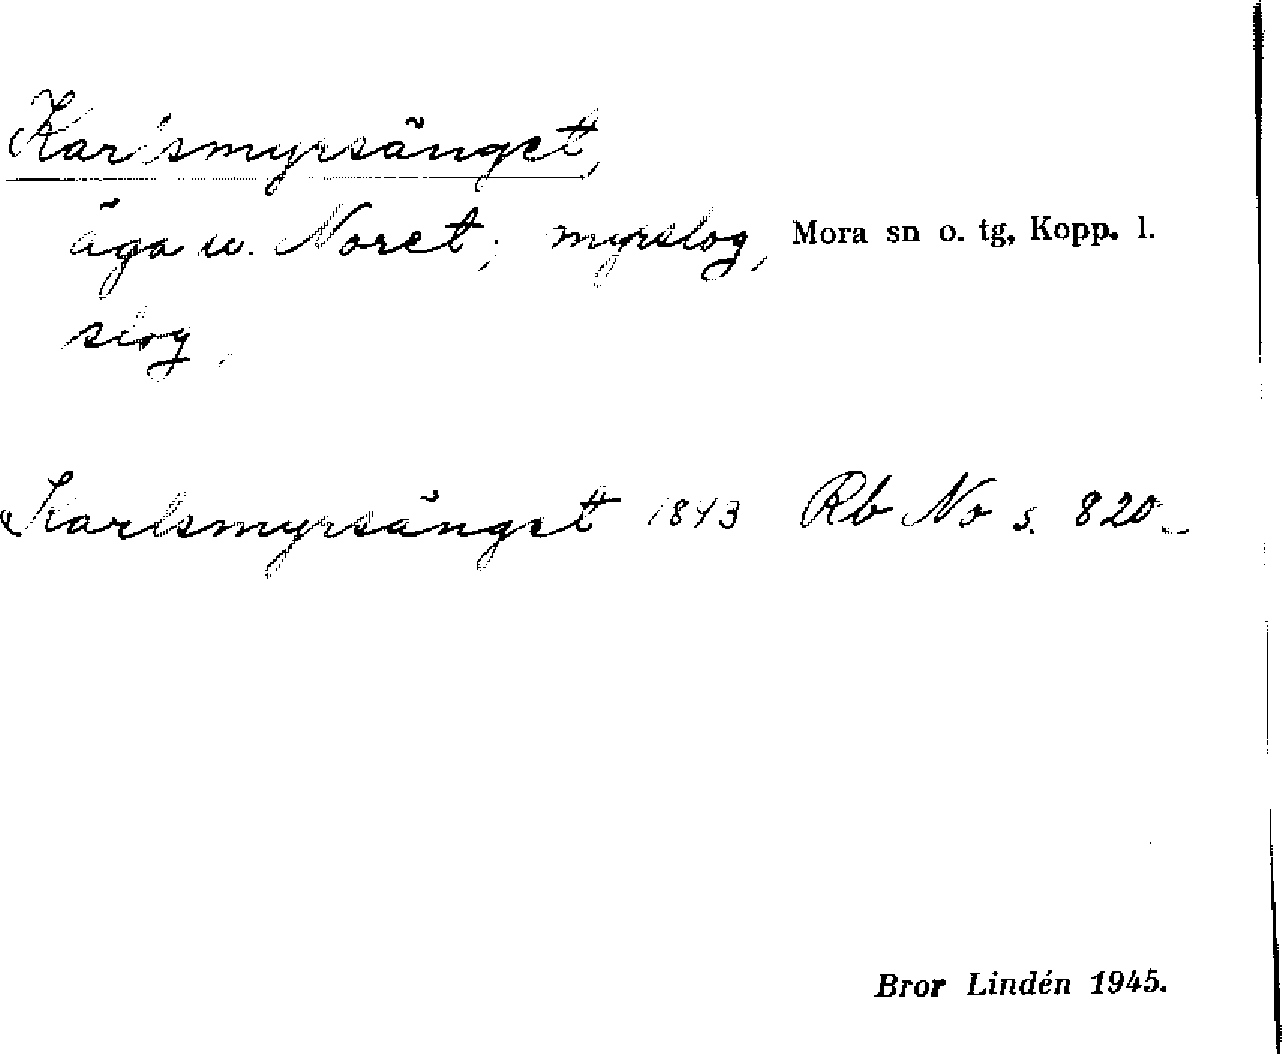 Karlsmyrsänget,
äga u. Noret; myrslog, Mora sn o. tg, Kopp. l.
slog.
Karlsmyrsänget 1843 Rb No s. 820.
Bror Lindén 1945.